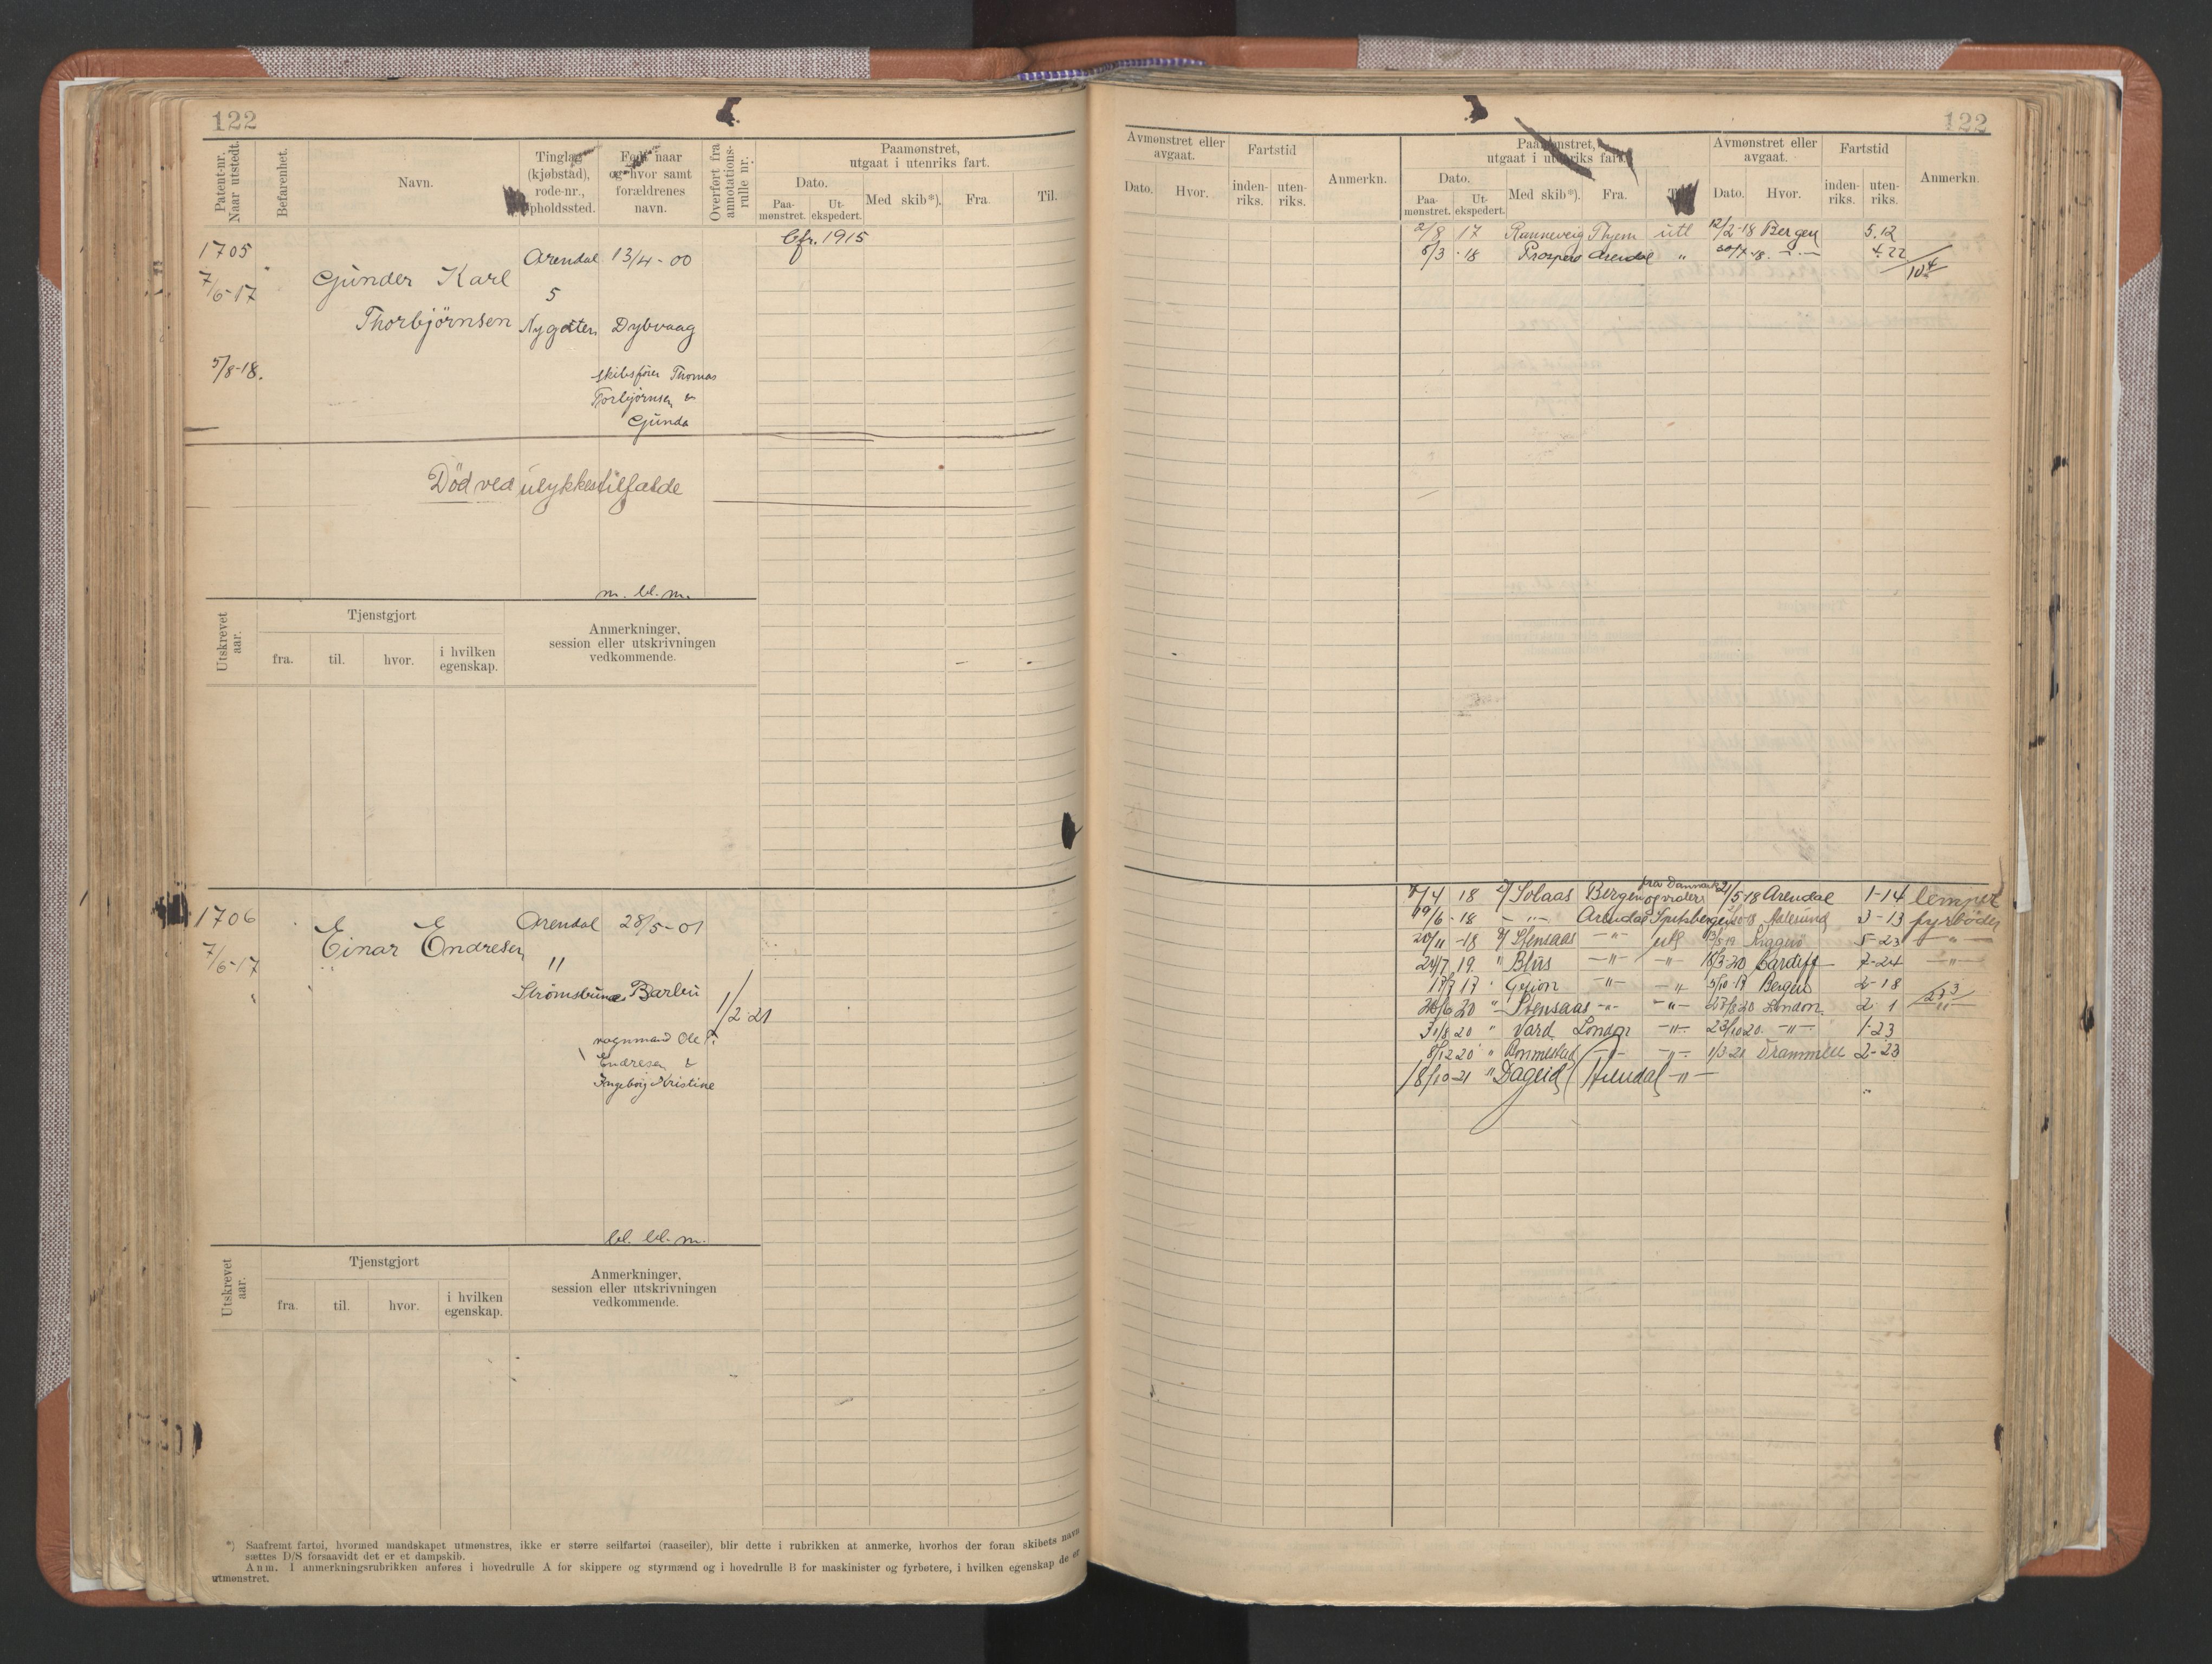 122
Patent-nr. Naar utstedt.
Befarenhet.
Navn.
Tinglag (kjøbstad), rode-nr., opholdssted.
Født naar og hvor samt forældrenes navn.
Overført fra annotations-rulle nr.
Paamønstret, utgaat i utenriks fart.
Dato.
Paa-mønstret.
Ut-ekspedert.
Med skib*).
Fra.
Til.
cfr. 1915
1705
7/6-17
Gunder Karl
Thorbjörnsen
Arendal 13/4-00
5
Nygaten Dybvaag
5/8-18.
skibsfører Thomas
Torbjörnsen &
Gunda
Død ved ulykkestilfælde
m. bl. m.
Utskrevet aar.
Tjenstgjort
fra.
til.
hvor.
i hvilken egenskap.
Anmerkninger, session eller utskrivningen vedkommende.
1706
7/6-17
Einar Endresen
Arendal 28/5-01
"
Strømsbunes Barbu
1/2 21
vognmand Ole P.
Endresen &
Ingeborg Kristine
bl. bl. m.
Utskrevet aar.
Tjenstgjort
fra.
til.
hvor.
i hvilken egenskap.
Anmerkninger, session eller utskrivningen vedkommende.
*) Saafremt fartøi, hvormed mandskapet utmønstres, ikke er større seilfartøi (raaseiler), blir dette i rubrikken at anmerke, hvorhos der foran skibets navn
sættes D/S forsaavidt det er et dampskib.
Anm. I anmerkningsrubrikken anføres i hovedrulle A for skippere og styrmænd og i hovedrulle B for maskinister og fyrbøtere, i hvilken egenskap de er
utmønstret.
122
Avmønstret eller avgaat.
Dato.
Hvor.
Fartstid
inden-riks.
uten-riks.
Anmerkn.
Paamønstret, utgaat i utenriks fart.
Dato.
Paa-mønstret.
Ut-ekspedert.
Med skib*).
Fra.
Avmønstret eller avgaat.
Dato.
Hvor.
Fartstid
inden-riks.
uten-riks.
Anmerkn.
2/8 17 Ranneveig utl 12/2-18 Bergen 5.12
8/3-18 Prospero Arendal " 4.22
10 4
18 Solaas Bergen fra Danmark 21/5-18 Arendal 1-14 lemper
19/6-18 -"- Arendal Spitsbergen Aalesund 3-13 fyrbøder
20/11-18 Stensaas -"- utl 5-23 -"-
24/7 19. " Blus -"- -"- 18/3-20 Cardiff 7-24 -"-
Gefion -"- -"- Bergen 2-18
26/6 20 " Stensaas -"- -"- 27/8-20 London 2 1
31/8 20 " Vard London -"- 23/10 20. -"- 1-23
8/12 20 " -"- -"- 1/3-21 Drammen 2-23
18/10-21 " Dageid Arendal -"-